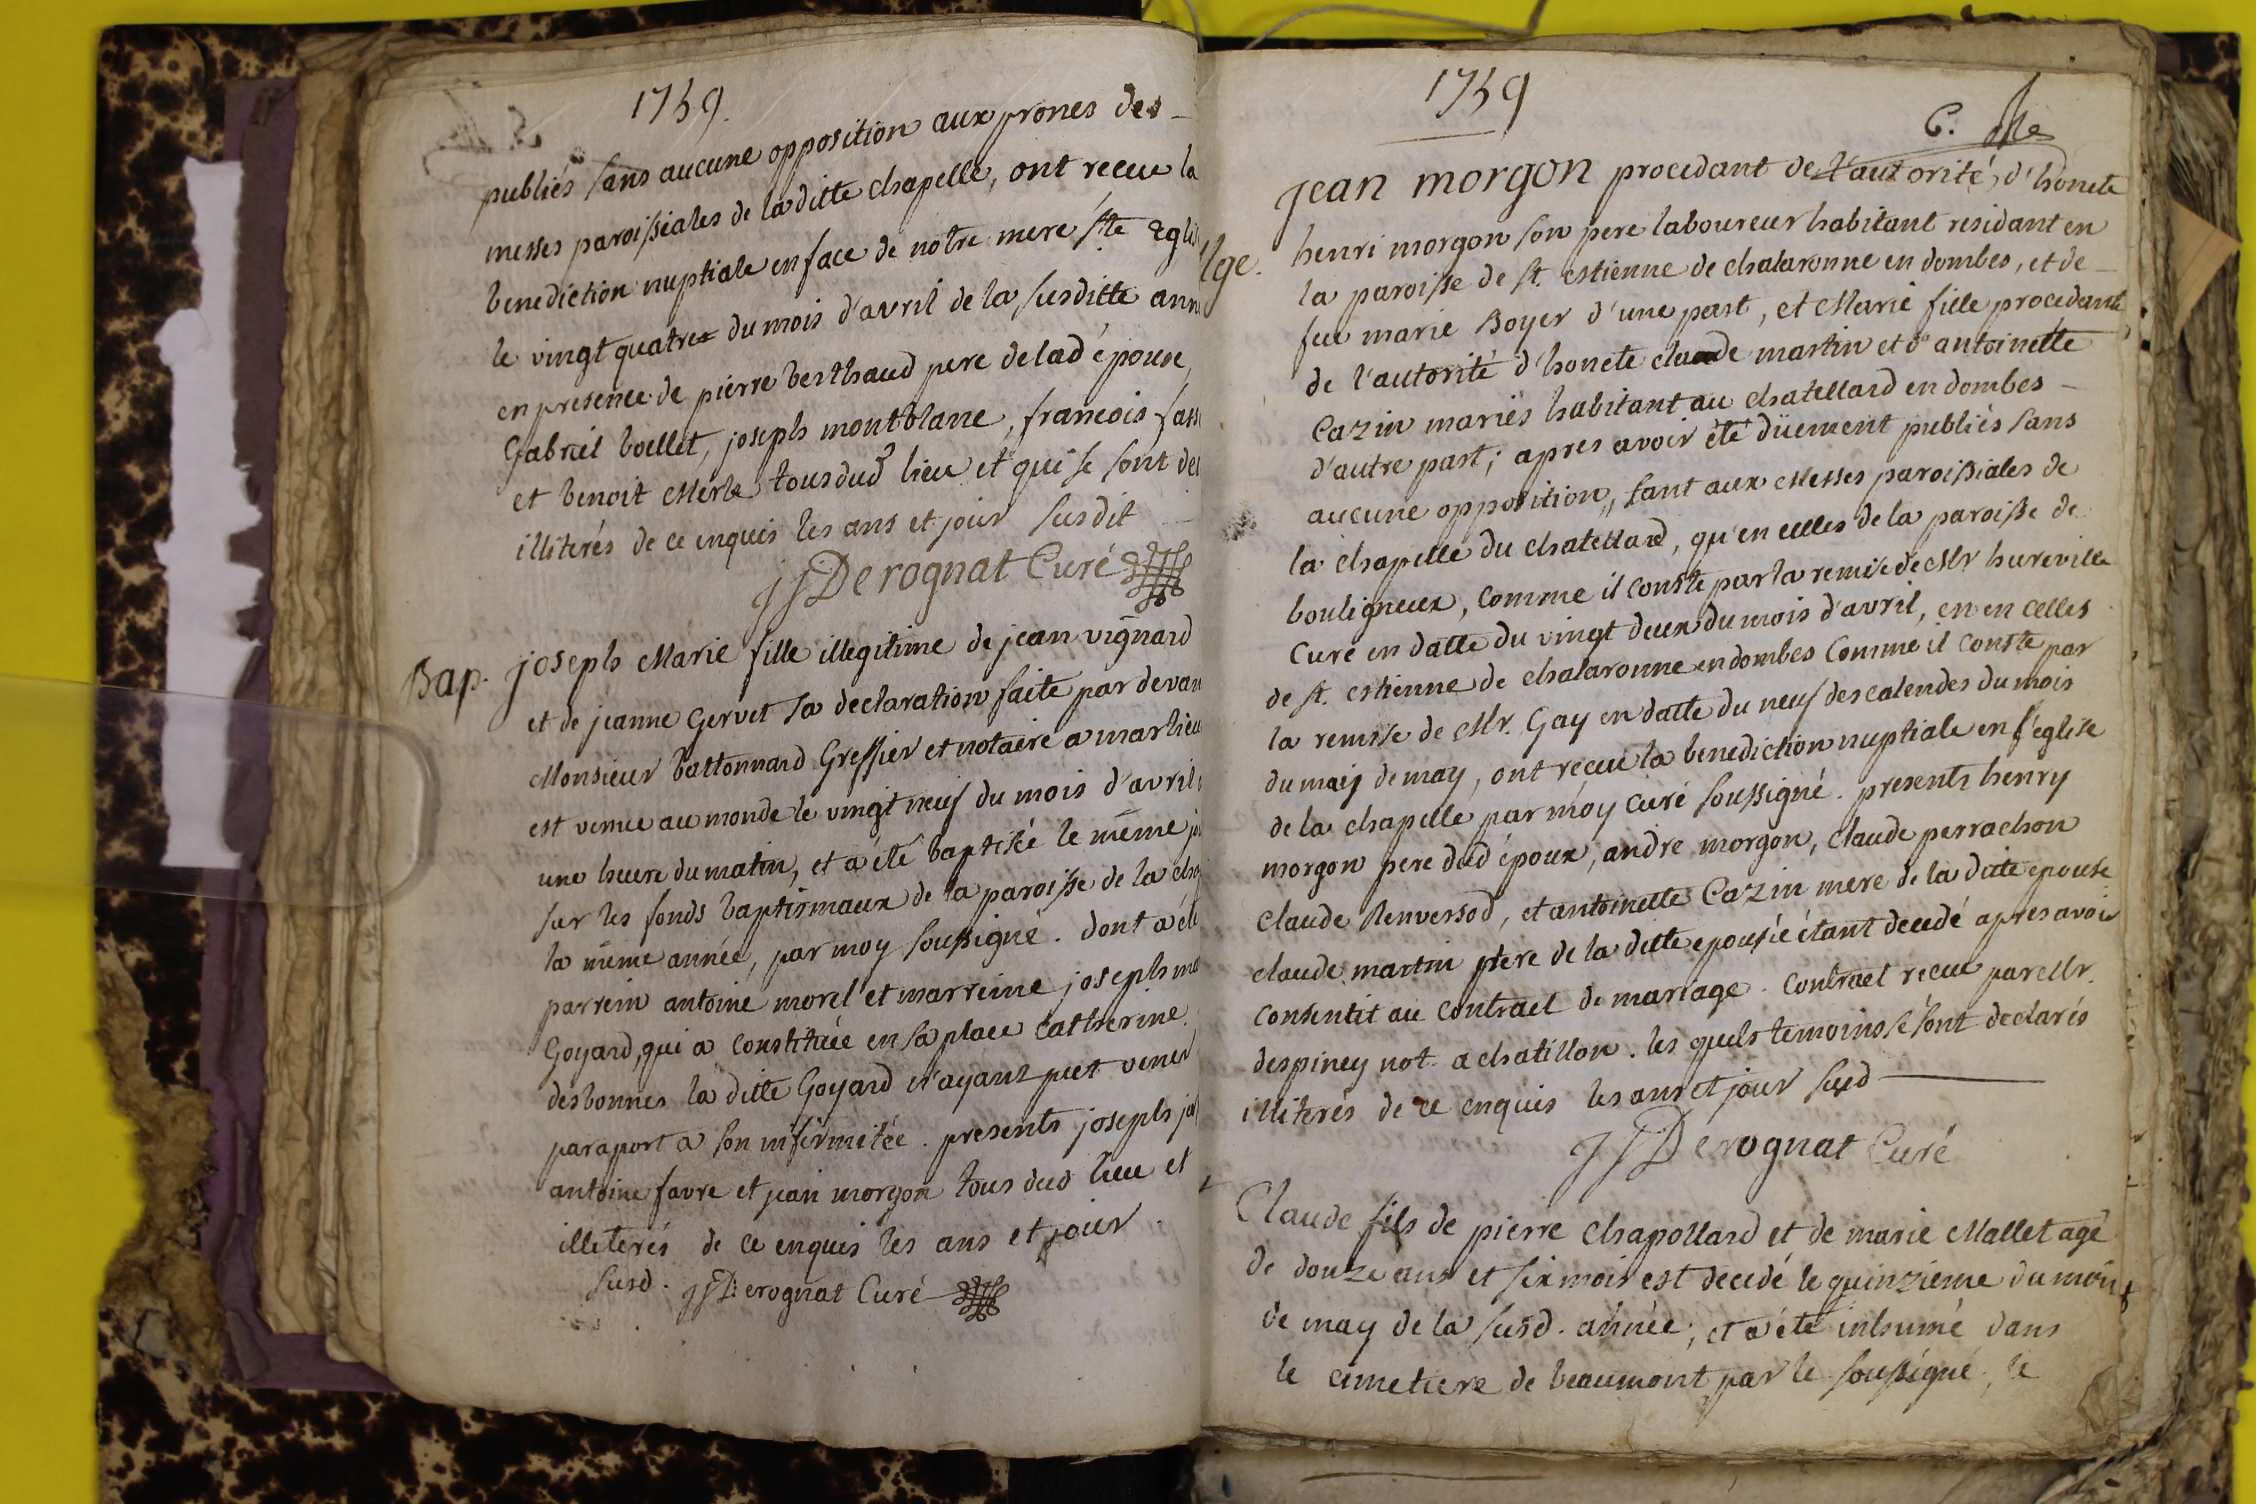 1759.
publiés sans aucune opposition aux prones des
messes paroissiales de la ditte chapelle, ont recue la
benediction nuptiale en face de notre mere ste Eglis
le vingt quatre du mois d'avril de la susditte ann
en presence de pierre berthaud pere de lad épouse
Gabriel bollet, joseph montblanc, francois fass
et benoit Merle tous dud lieu et qui se sont de
illiterés de ce enquis les ans et jour susdit
JJ Derognat Curé
Bap. joseph Marie fille illegitime de jean vignard
et de jeanne Gervet sa declaration faite par devan
Monsieur battonnard Greffier et notaire a marlieu
est venue au monde le vingt neuf du mois d'avril
une heure du matin, et a été baptisé le même jo
sur les fonds baptismaux de la paroisse de la chap
la même année, par moy soussigné. dont a été
parrein antoine morel et marreine joseph ma
Goyard, qui a constituée en sa place Catherine
desbonnes la ditte Goyard n'ayant put venir
paraport a son infirmitée. presents joseph jo
antoine favre et jean morgon tous dud lieu et
illeterés de ce enquis les ans et jour
susd. JJ Derognat Curé
1759
6.
jean morgon procedant de l'autorité d'honete
henri morgon son pere laboureur habitant residant en
lge. la paroisse de st. estienne de chalaronne en dombes, et de
feu marie Boyer d'une part, et Marie fille procedante
de l'autorité d'honete claude martin et d'antoinette
Cazin mariés habitant au chatellard en dombes
d'autre part; apres avoir été düement publiés sans
aucune opposition, tant aux Messes paroissiales de
la chapelle du chatellard, qu'en celles de la paroisse de
bouligneux, comme il conste par la remise de Mr hureville
Curé en datte du vingt deux du mois d'avril, en en celles
de st. estienne de chalaronne en dombes Comme il conste par
la remise de Mr. Gay en datte du neuf des calendes du mois
du maij de may, ont reçue la benediction nuptiale en l'église
de la chapelle par moy curé soussigné. presents henry
morgon pere dud époux, andre morgon, Claude perrachon
Claude Renversod, et antoinette Cazin mere de la ditte epouse
claude martin pere de la ditte epousée étant decedé apres avoir
consentit au contract de mariage. Contract recue par Mr.
despiney not. a chatillon. les quels temoins se sont declarés
illiterés de ce enquis les ans et jour susd
JJ Derognat Curé
Claude fils de pierre Chapollard et de marie Mallet agé
de douze ans et six mois est decedé le quinzieme du mois
de may de la susd. année; et a été inhumé dans
le cimetiere de beaumont par le soussigné, le